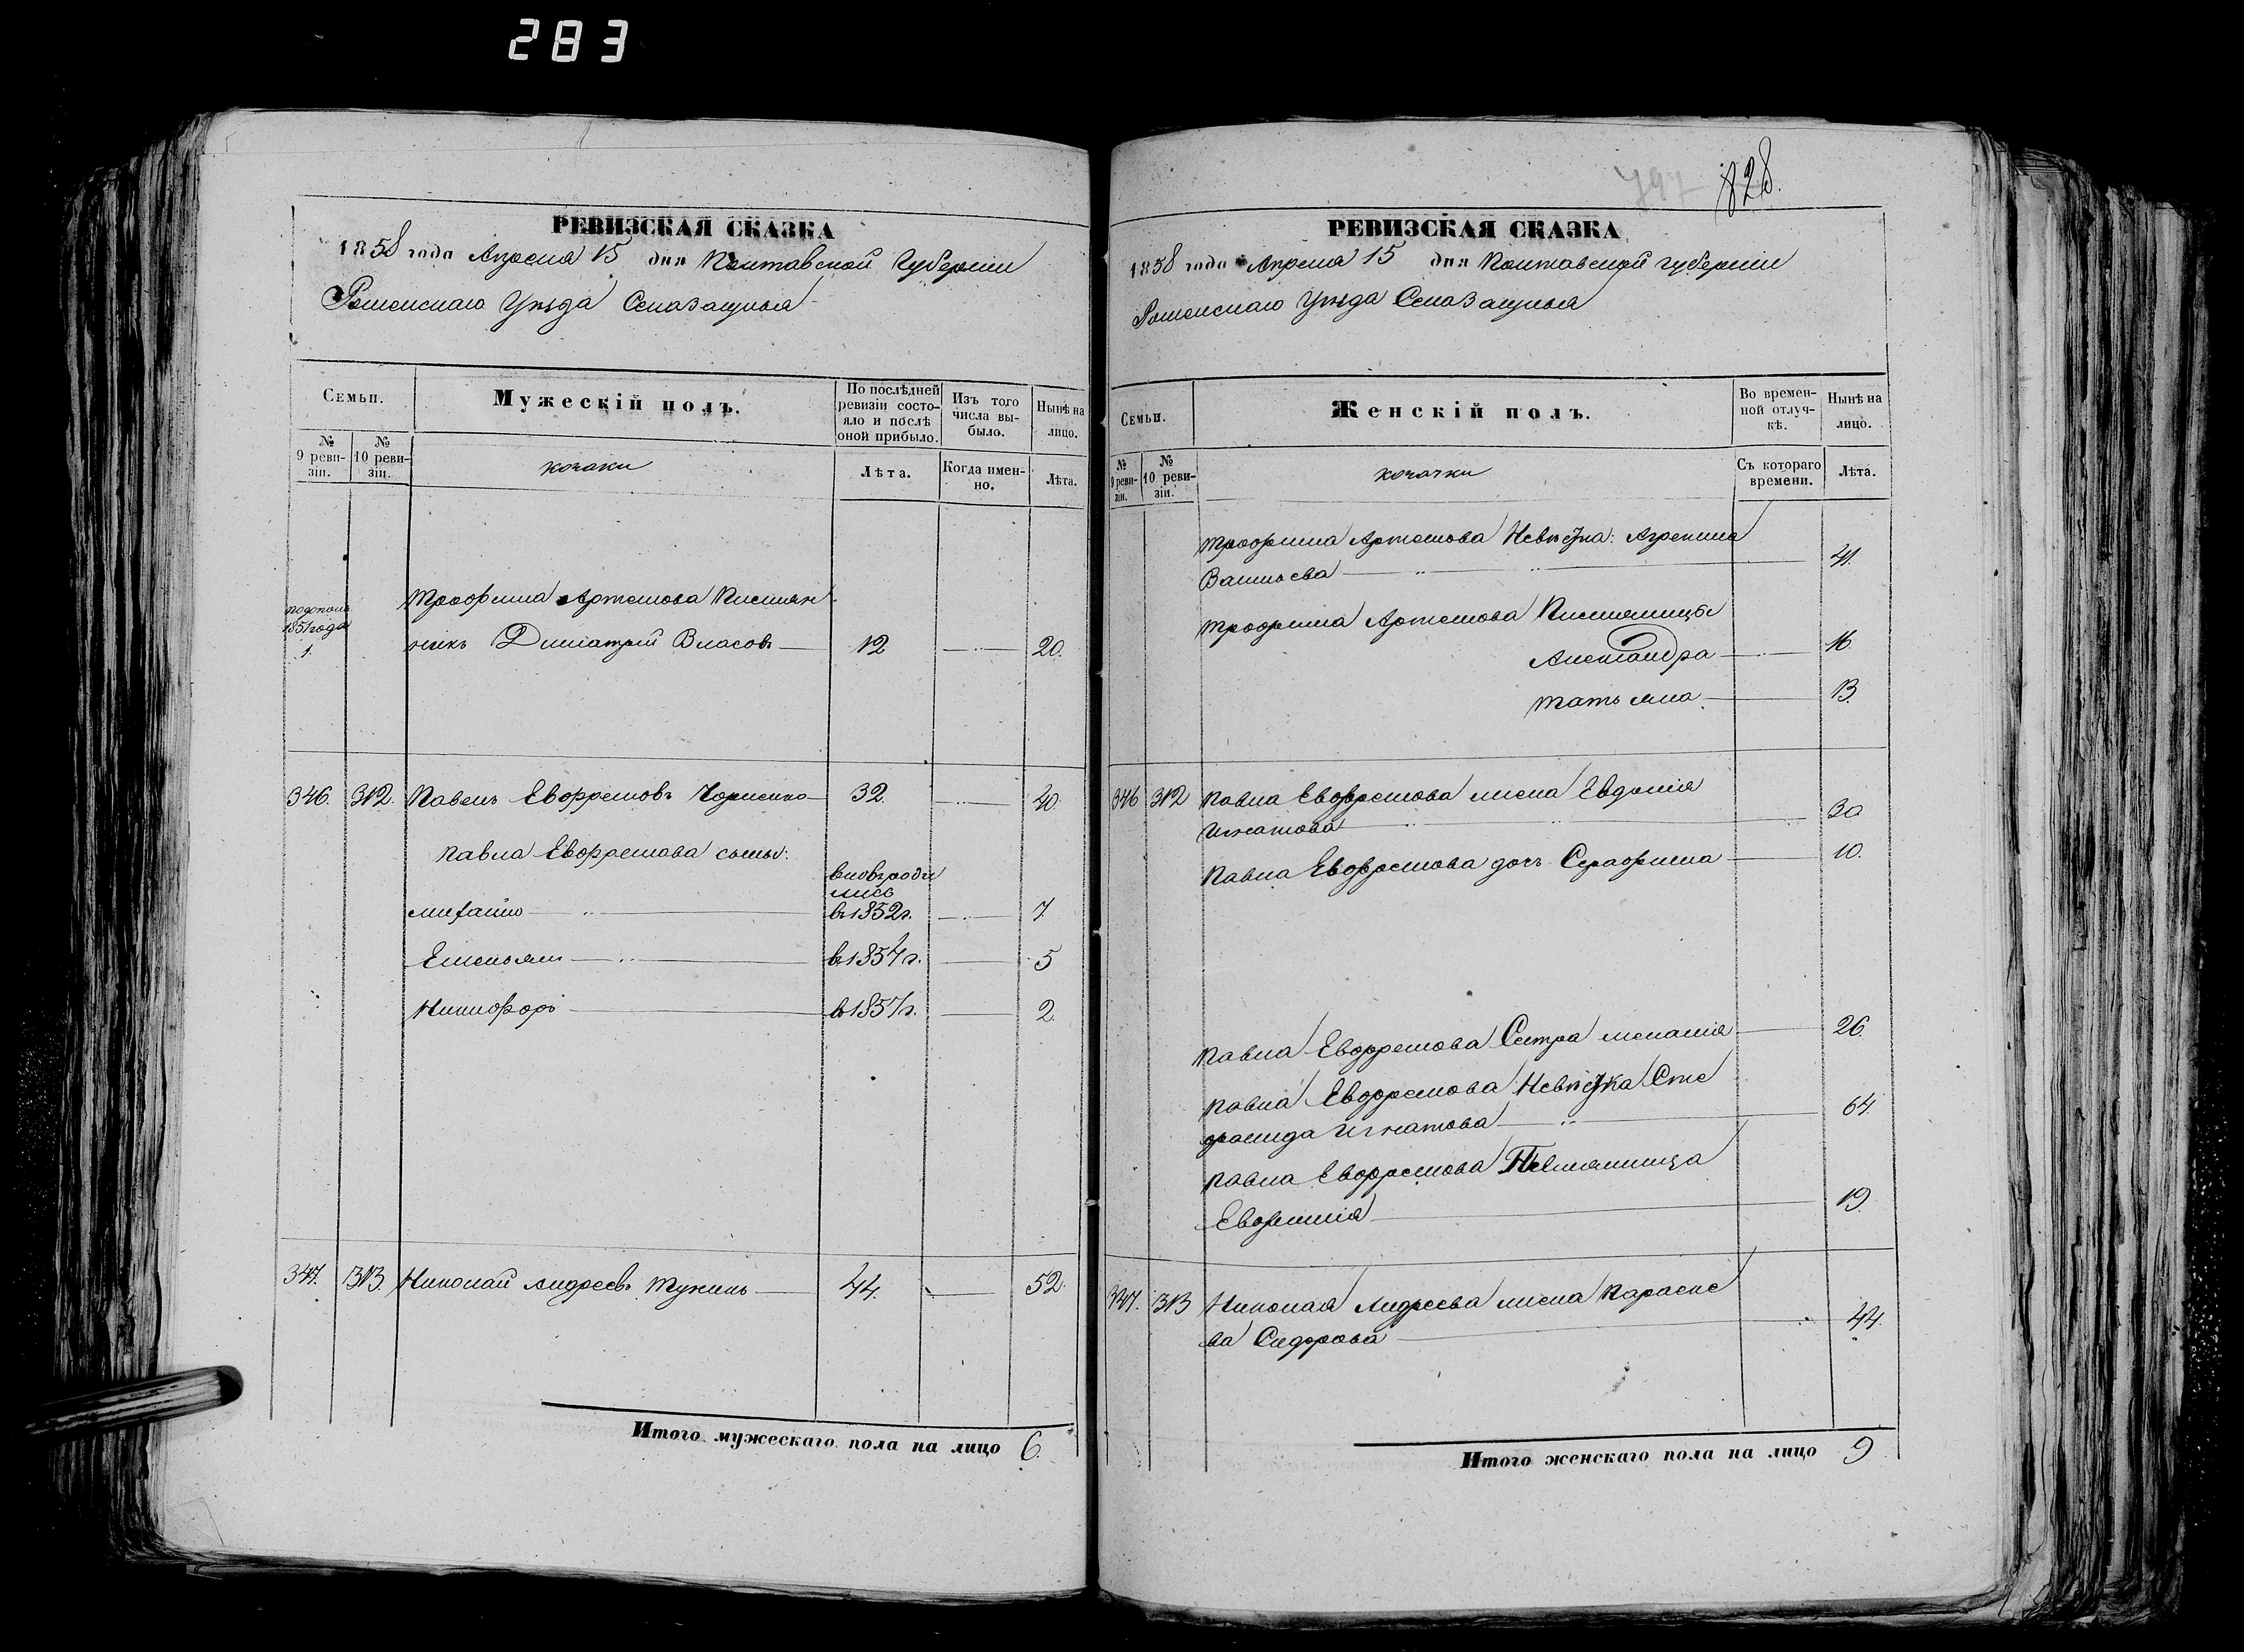 283
РЕВИЗСКАЯ СКАЗКА
1858 года Апреля 15 дня Полтавской Губернии
Роменскаго Уѣзда
Семьи.
Мужескій полъ.
По послѣдней ревизіи состояло и послѣ оной прибыло.
Изъ того числа выбыло.
Нынѣ на лицо.
№ 9 ревизіи.
№ 10 ревизіи.
козаки
Лѣта.
Когда именно.
Лѣта.
1851 года
1.
Трофима Артемова Племян
никъ Димитрій Власовъ 12 20.
346. 312. Павелъ Евфремовъ 32. 40.
Павла Евфремова сыны:
вновь роди
лись
Михайло в 1852 г. 7
Емельян в 1854 г. 5
Никифоръ в 1857 г. 2.
347. 313. Николай Андреевъ 44. 52.
Итого мужескаго пола на лицо 6.
797 828.
РЕВИЗСКАЯ СКАЗКА
1858 года Апреля 15 дня Полтавской губернии
Роменскаго Уѣзда
Семьи.
Женскій полъ.
Во временной отлучкѣ.
Нынѣ на лицо.
№ 9 ревизіи.
№ 10 ревизіи.
козачки
Съ котораго времени.
Лѣта.
Трофима Артемова Невѣстка: Агрепина
Василева 41.
Трофима Артемова Племяницы
Александра 16.
Татьяна 13.
346 312 Павла Евфремова жена Евдокія
Игнатова 30
Павла Евфремова дочь Серафима 10.
Павла Евфремова Сестра Меланія 26.
Павла Евфремова Невѣстка Сте
фанида Игнатова 64.
Павла Евфремова Племянница
Евфимия 19.
347. 313 Николая Андреева жена Параске
ва Сидорова 44.
Итого женскаго пола на лицо 9